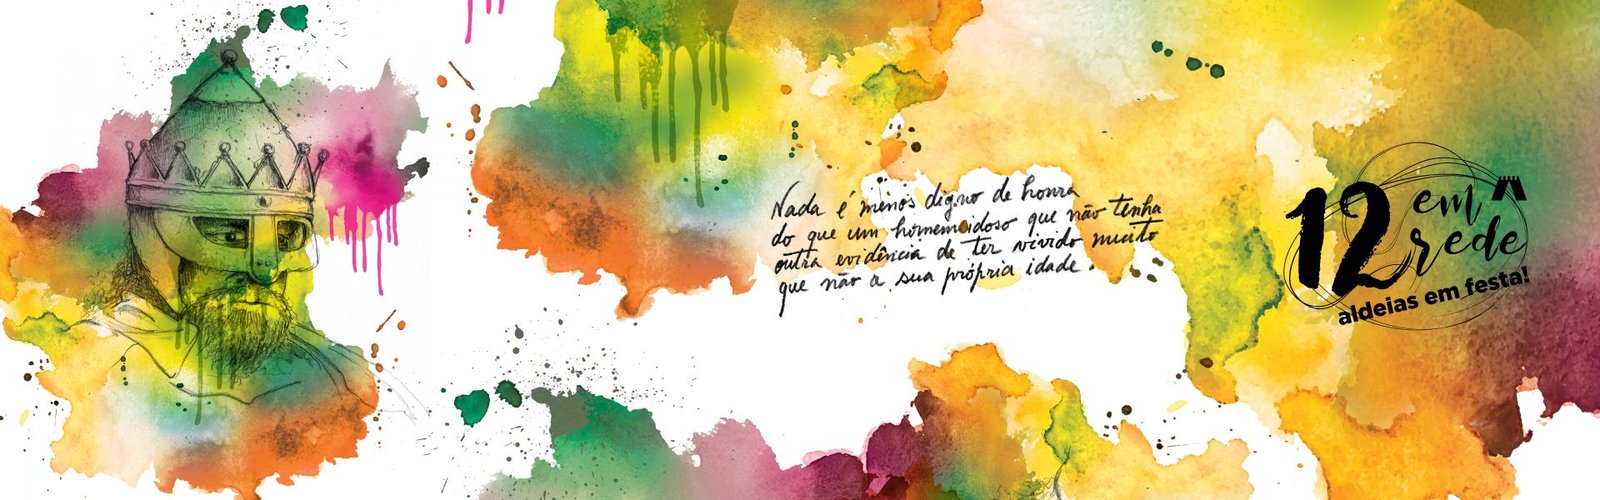 Nada é menos digno de honra
do que um homem idoso que não tenha
outra evidência de ter vivido muito
que não a sua própria idade.
12 em rede
aldeias em festa!